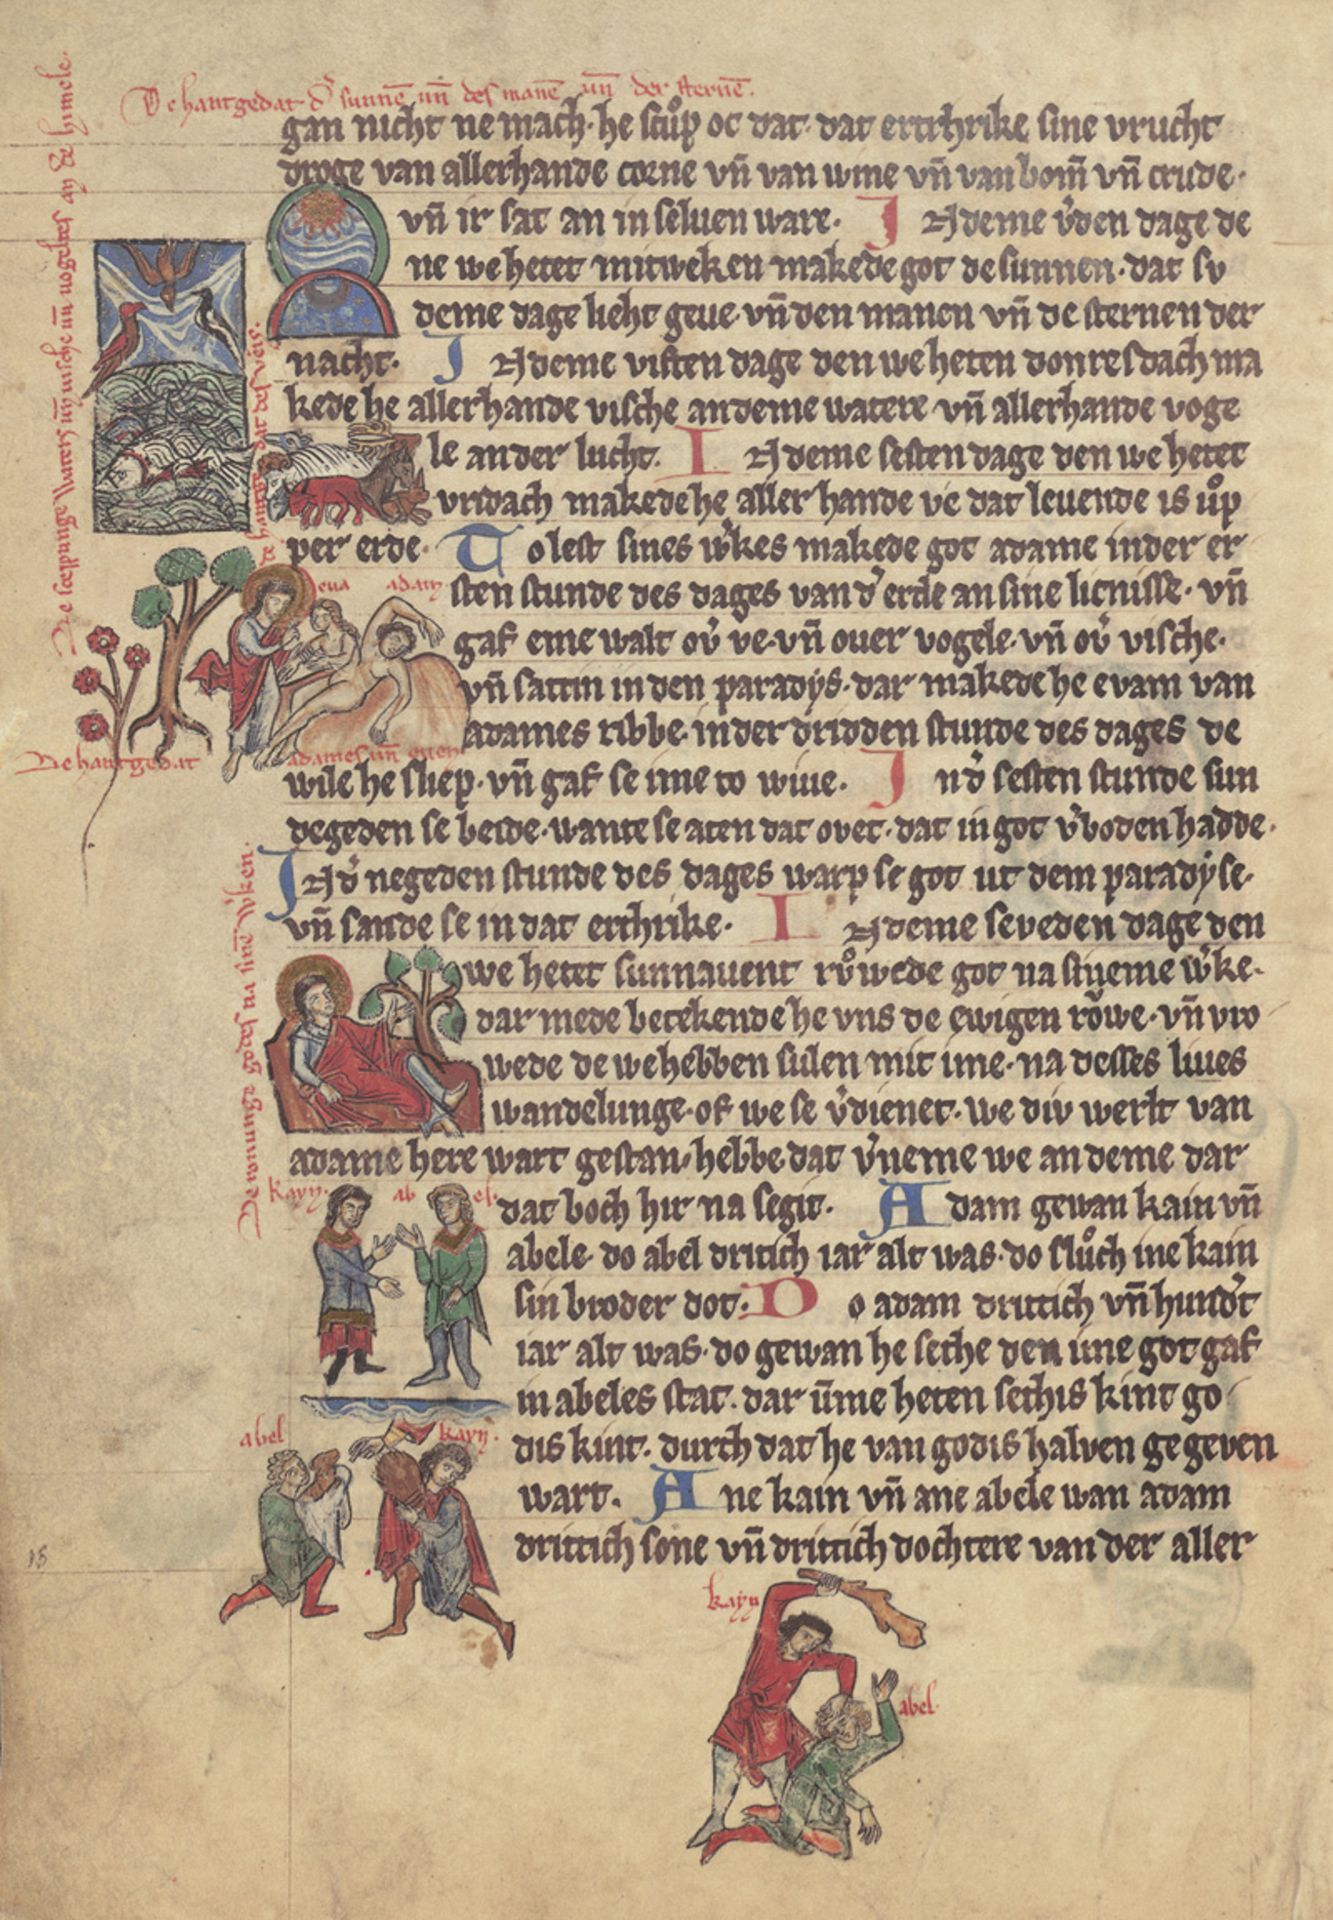 De hantgedat d᷑ sunnē un̄ des manē un̄ der sternē.
gan nicht ne mach· he scůp oc dat· dat ertrhrike sine vrucht
droge van allerhande corne vn̄ van wine vn̄ van bom̄ vn̄ crude·
vn̄ ir sat an in seluen ware· IN deme v᷑den dage de
ne we hetet mitweken makede got de sunnen· dat sv
deme dage lieht geue· vn̄ den manen vn̄ de sternen der
nacht· IN deme viften dage den we heten donresdach ma
kede he allerhande vische an deme watere vn̄ allerhande voge
le an der lucht· IN deme sesten dage den we hetet
vridach makede he aller hande ve dat leuende is ůp
per erde· To lest sines w᷑kes makede got adame in der er
sten stunde des dages van d᷑ erde an sine licnisse· vn̄
gaf eme walt ov᷑ ve· vn̄ ouer vogele· vn̄ ov᷑ vische·
vn̄ sattin in den paradys· dar makede he evam van
adames ribbe· in der dridden stunde des dages de
wile he sliep· vn̄ gaf se ime to wiue· In d᷑ sesten stunde sun
degeden se beide· wante se aten dat ovet· dat in got v᷑boden hadde·
IN d᷑ negeden stunde des dages warp se got ut dem paradyse·
vn̄ sande se in dat erthrike· IN deme seveden dage den
we hetet sunnauent růwede got na sineme w᷑ke·
dar mede betekende he vns de ewigen rowe· vn̄ vro
wede de we hebben sulen mit ime· na desses liues
wandelunge· of we se v᷑dienet· we div werlt van
adame here wart gestan· hebbe dat v᷑neme we an deme dar
dat boch hir na segit· Adam gewan kain vn̄
abele· do abel dritich iar alt was· do slůch ine kain
sin broder dot· Do adam drittich vn̄ hund᷑t
iar alt was· do gewan he sethe den ime got gaf
in abeles stat· dar v̄me heten sethis kint go
dis kint· durch dat he van godis halven gegeven
wart· Ane kain vn̄ ane abele wan adam
drittich sone vn̄ drittich dochtere van der aller
De sceppunge waters un̄ vische un̄ vogeles an de himele.
de hantgedat des veis.
eua adam
De hantgedat adames un̄ euen
De rowunge godes na sinē w᷑ken.
Kayn· abel·
abel kayn·
kayn
abel·